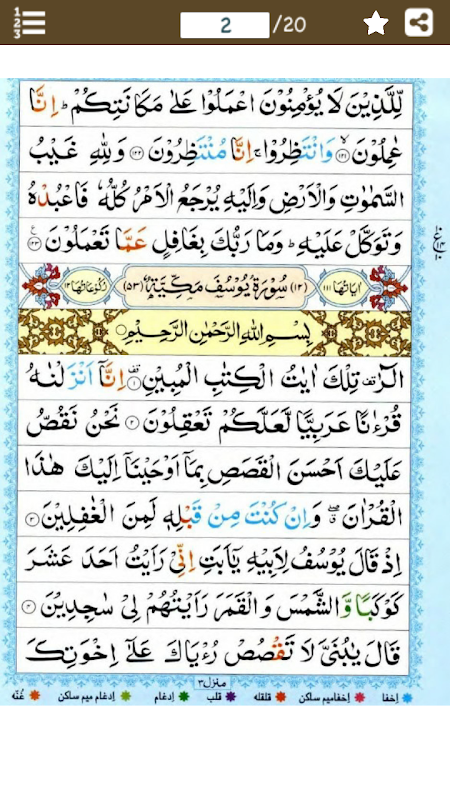 2 /20
لِّلَّذِيْنَ لَا يُؤْمِنُوْنَ اعْمَلُوْا عَلٰى مَكَانَتِكُمْ ؕ اِنَّا
عٰمِلُوْنَ ۙ‏﴿۱۲۱﴾ وَانْتَظِرُوْا ۚ اِنَّا مُنْتَظِرُوْنَ ﴿۱۲۲﴾ وَلِلّٰهِ غَيْبُ
السَّمٰوٰتِ وَالْاَرْضِ وَاِلَيْهِ يُرْجَعُ الْاَمْرُ كُلُّهٗ فَاعْبُدْهُ
وَتَوَكَّلْ عَلَيْهِ ؕ وَمَا رَبُّكَ بِغَافِلٍ عَمَّا تَعْمَلُوْنَ ﴿۱۲۳﴾
اٰيَاتُهَا ۱۱۱ (۱۲) سُوْرَةُ يُوْسُفَ مَكِّيَّةٌ (۵۳) رُكُوْعَاتُهَا ۱۲
بِسْمِ اللّٰهِ الرَّحْمٰنِ الرَّحِيْمِ
الٓرٰ ۚ تِلْكَ اٰيٰتُ الْكِتٰبِ الْمُبِيْنِ ﴿۱﴾ اِنَّاۤ اَنْزَلْنٰهُ
قُرْءٰنًا عَرَبِيًّا لَّعَلَّكُمْ تَعْقِلُوْنَ ﴿۲﴾ نَحْنُ نَقُصُّ
عَلَيْكَ اَحْسَنَ الْقَصَصِ بِمَاۤ اَوْحَيْنَاۤ اِلَيْكَ هٰذَا
الْقُرْاٰنَ ۖ وَاِنْ كُنْتَ مِنْ قَبْلِهٖ لَمِنَ الْغٰفِلِيْنَ ﴿۳﴾
اِذْ قَالَ يُوْسُفُ لِاَبِيْهِ يٰۤاَبَتِ اِنِّيْ رَاَيْتُ اَحَدَ عَشَرَ
كَوْكَبًا وَّالشَّمْسَ وَالْقَمَرَ رَاَيْتُهُمْ لِيْ سٰجِدِيْنَ ﴿۴﴾
قَالَ يٰبُنَيَّ لَا تَقْصُصْ رُءْيَاكَ عَلٰۤى اِخْوَتِكَ
منزل۳
اِخفا اِخفامیم ساکن قلقله قلب اِدغام اِدغام میم ساکن غُنّه